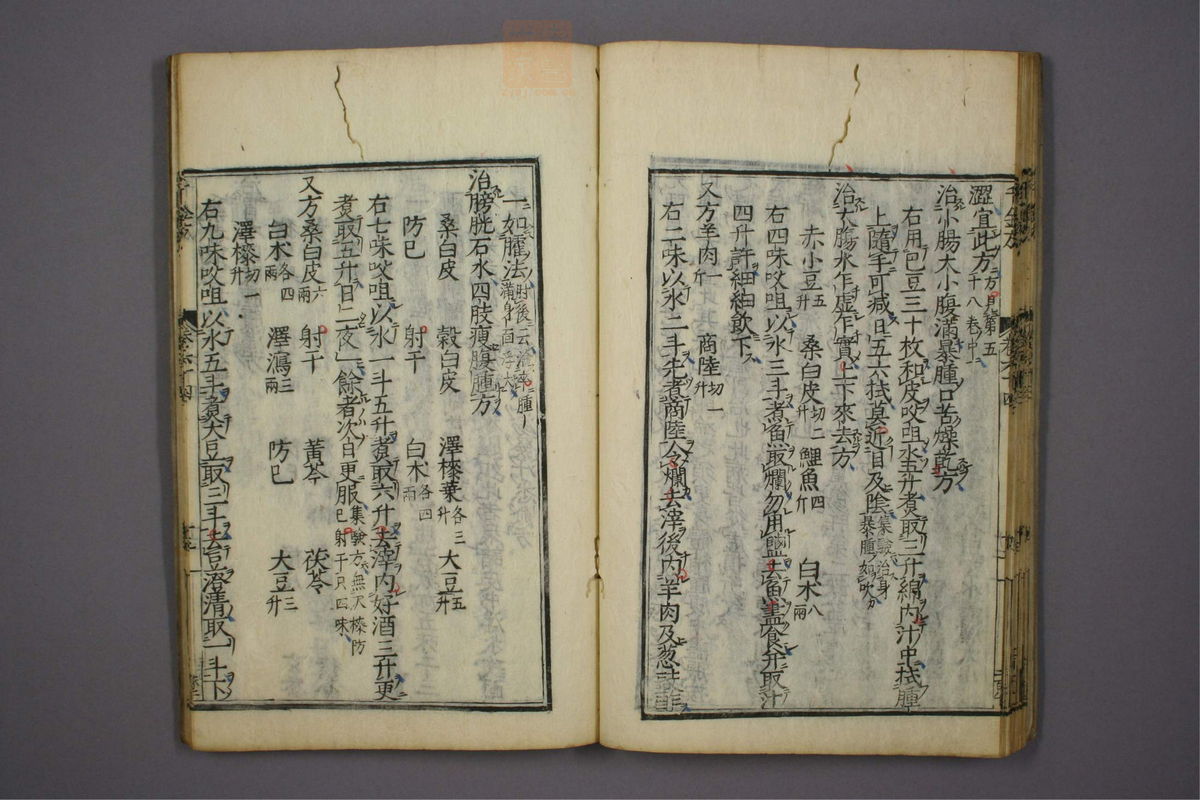 澀宜此方方見第五十八卷中
治小腸水小腹滿暴腫口苦燥乾方
右用巴豆三十枚和皮㕮咀水五升煮取三升綿內汁中拭腫
上隨手可減日五六拭莫近目及陰集驗治身暴腫如吹
治大腸水乍虛乍實上下來去方
赤小豆五升 桑白皮切二升 鯉魚四斤 白朮八兩
右四味㕮咀以水三斗煮魚取爛勿用鹽去魚盡食并取汁
四升許細細飲下
又方羊肉一斤 商陸切一升
右二味以水二斗先煮商陸令爛去滓後內羊肉及葱豉醋
一如臛法肘後云治卒腫滿身面浮大
治膀胱石水四肢瘦腹腫方
桑白皮 穀白皮 澤漆葉各三升 大豆五升
防巳 射干 白朮各四兩
右七味㕮咀以水一斗五升煮取六升去滓內好酒三升更
煮取五升日二夜一餘者次日更服集驗方無澤漆防巳射干只四味
又方桑白皮六兩 射干 黃芩 茯苓
白朮各四兩 澤瀉三兩 防巳 大豆三升
澤漆切一升
右九味㕮咀以水五斗煮大豆取三斗去豆澄清取一斗下